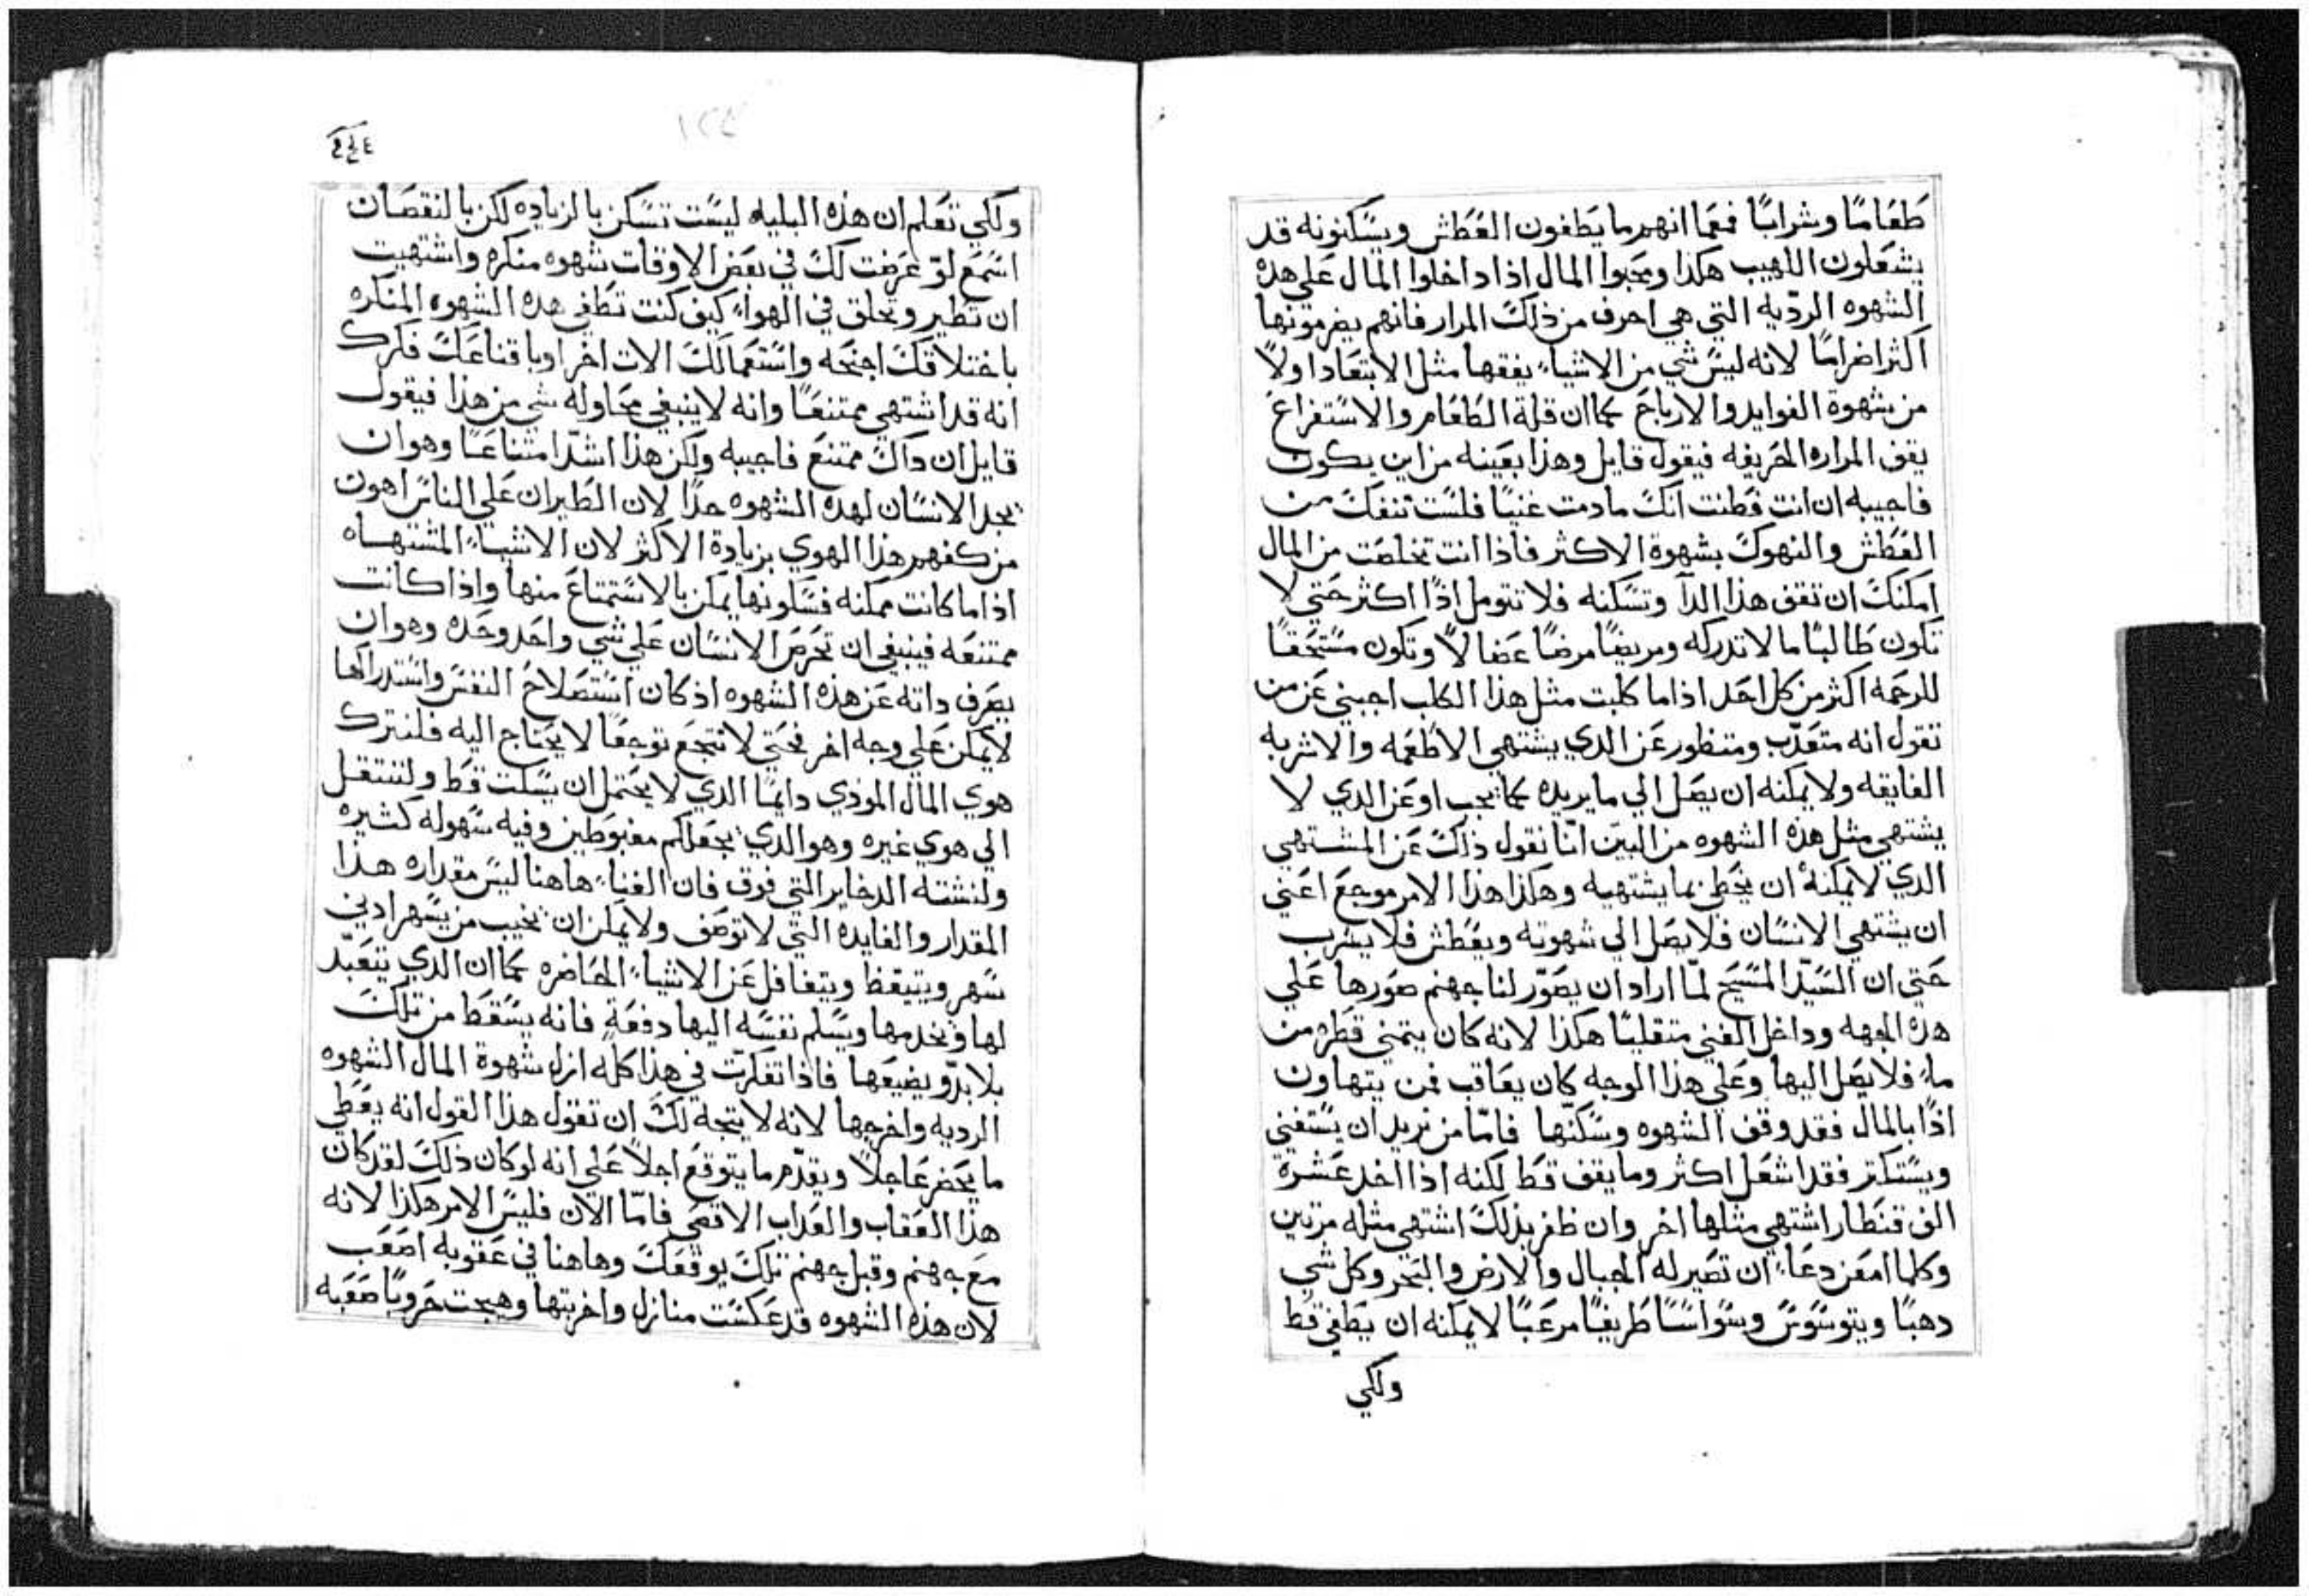 طعامًا وشرابًا فمعما انهم ما يطفون العطش ويسكنونه قد
يشعلون اللهيب هكذا ومحبوا المال اذا داخلوا المال علي هذه
الشهوه الرديه التي هي احرف من ذلك المرار فانهم يضرمونها
اكثر اضرامًا لانه ليس شي من الاشياء يقفها مثل الابتعاد اولاً
من شهوة الفوايد والارباح كما ان قلة الطعام والاستفراغ
يقف المراره الحريفه فيقول قايل وهذا بعينه من اين يكون
فاجيبه ان انت فطنت انك ما دمت غنيًا فلست تنفك من
العطش والنهوك بشهوة الاكثر فاذا انت تخلصت من المال
امكنك ان تقف هذا الدآ وتسكنه فلا تتومل اذًا اكثر حتي لا
تكون طالبًا ما لا تدركه ومريضًا مرضًا عضالاً وتكون مستحقًا
للرحمه اكثر من كل احد اذا ما كلبت مثل هذا الكلب اجبني عن من
تقول انه متعذب ومتطور عن الدي يشتهي الاطعمه والاشربه
الفايقه ولا يمكنه ان يصل الي ما يريده كما يجب او عن الدي لا
يشتهي مثل هذه الشهوه من البيّن انّنا نقول ذلك عن المشتهي
الدي لا يمكنه ان يحظي بما يشتهيه وهكذا هذا الامر موجع اعني
ان يشتهي الانسان فلا يصل الي شهوته ويعطش فلا يشرب
حتي ان السيد المسيح لمّا اراد ان يصوّر لنا جهنم صورها علي
هذه الجهه وداخل الغني متقليًا هكذا لانه كان يتمني قطره من
ماء فلا يصل اليها وعلي هذا الوجه كان يعاقب فمن يتهاون
اذًا بالمال فقد وقف الشهوه وسكّنها فامّا من يريد ان يستغني
ويستكتر فقد اشعل اكثر وما يقف قط لكنه اذا اخد عشرة
الف قنطار اشتهي مثلها اخر وان ظفر بذلك اشتهي مثله مرتين
وكلما امعن دعاء ان تصير له الجبال والارض والبحر وكل شي
دهبًا ويتوسوس وسواسًا طريفًا مرعبًا لا يمكنه ان يطفي قط
ولكي
ولكي تعلم ان هذه البليه ليست تسكن بالزياده لكن بالنقصان
اسمع لو عرضت لك في بعض الاوقات شهوه منكره واشتهيت
ان تطير وتحلق في الهواء كيف كنت تطفي هذه الشهوه المنكره
باختلاقك اجنحه واستعمالك الات اخر او باقناعك فكرك
انه قد اشتهي ممتنعًا وانه لا ينبغي محاوله شي من هذا فيقول
قايل ان داك ممتنع فاجيبه ولكن هذا اشدّ امتناعًا وهو ان
يجد الانسان لهده الشهوه حدًا لان الطيران علي الناس اهون
من كفهم هذا الهوي بزيادة الاكثر لان الاشياء المشتهاه
اذا ما كانت ممكنه فسلونها يمكن بالاستمتاع منها واذا كانت
ممتنعه فينبغي ان تحرص الانسان علي شي واحد وحده وهو ان
يصرف داته عن هذه الشهوه اذ كان استصلاح النفس واستدراكها
لا يمكن علي وجه اخر فحتي لا نتوجع توجعًا لا يحتاج اليه فلنترك
هوي المال الموذي دايمًا الدي لا يحتمل ان يسكت قط ولننتقل
الي هوي غيره وهو الدي يجعلكم مغبوطين وفيه سهوله كثيره
ولنشته الدخاير التي فوق فان العناء هاهنا ليس مقداره هذا
المقدار والفايده التي لا توصف ولا يمكن ان يخيب من يسهر ادني
سهر ويتيقظ ويتغافل عن الاشياء الحاضره كما ان الدي يتعبّد
لها ويخدمها ويسلم نفسه اليها دفعةٍ فانه يسقط من تلك
بلا بدّ ويضيعها فاذا تفكرت في هذا كله ازل شهوة المال الشهوه
الرديه واخرجها لانه لا يتجه لك ان تقول هذا القول انه يعطي
ما يحضر عاجلاً ويقدّم ما يتوقع اجلاً علي انه لو كان ذلك لقد كان
هذا العقاب والعداب الاقصي فامّا الآن فليس الامر هكذا لانه
مع جهنم وقبل جهنم تلك يوقعك وهاهنا في عقوبه اصعب
لان هذه الشهوه قد عكست منازل واخربتها وهيجت حروبًا صعبه